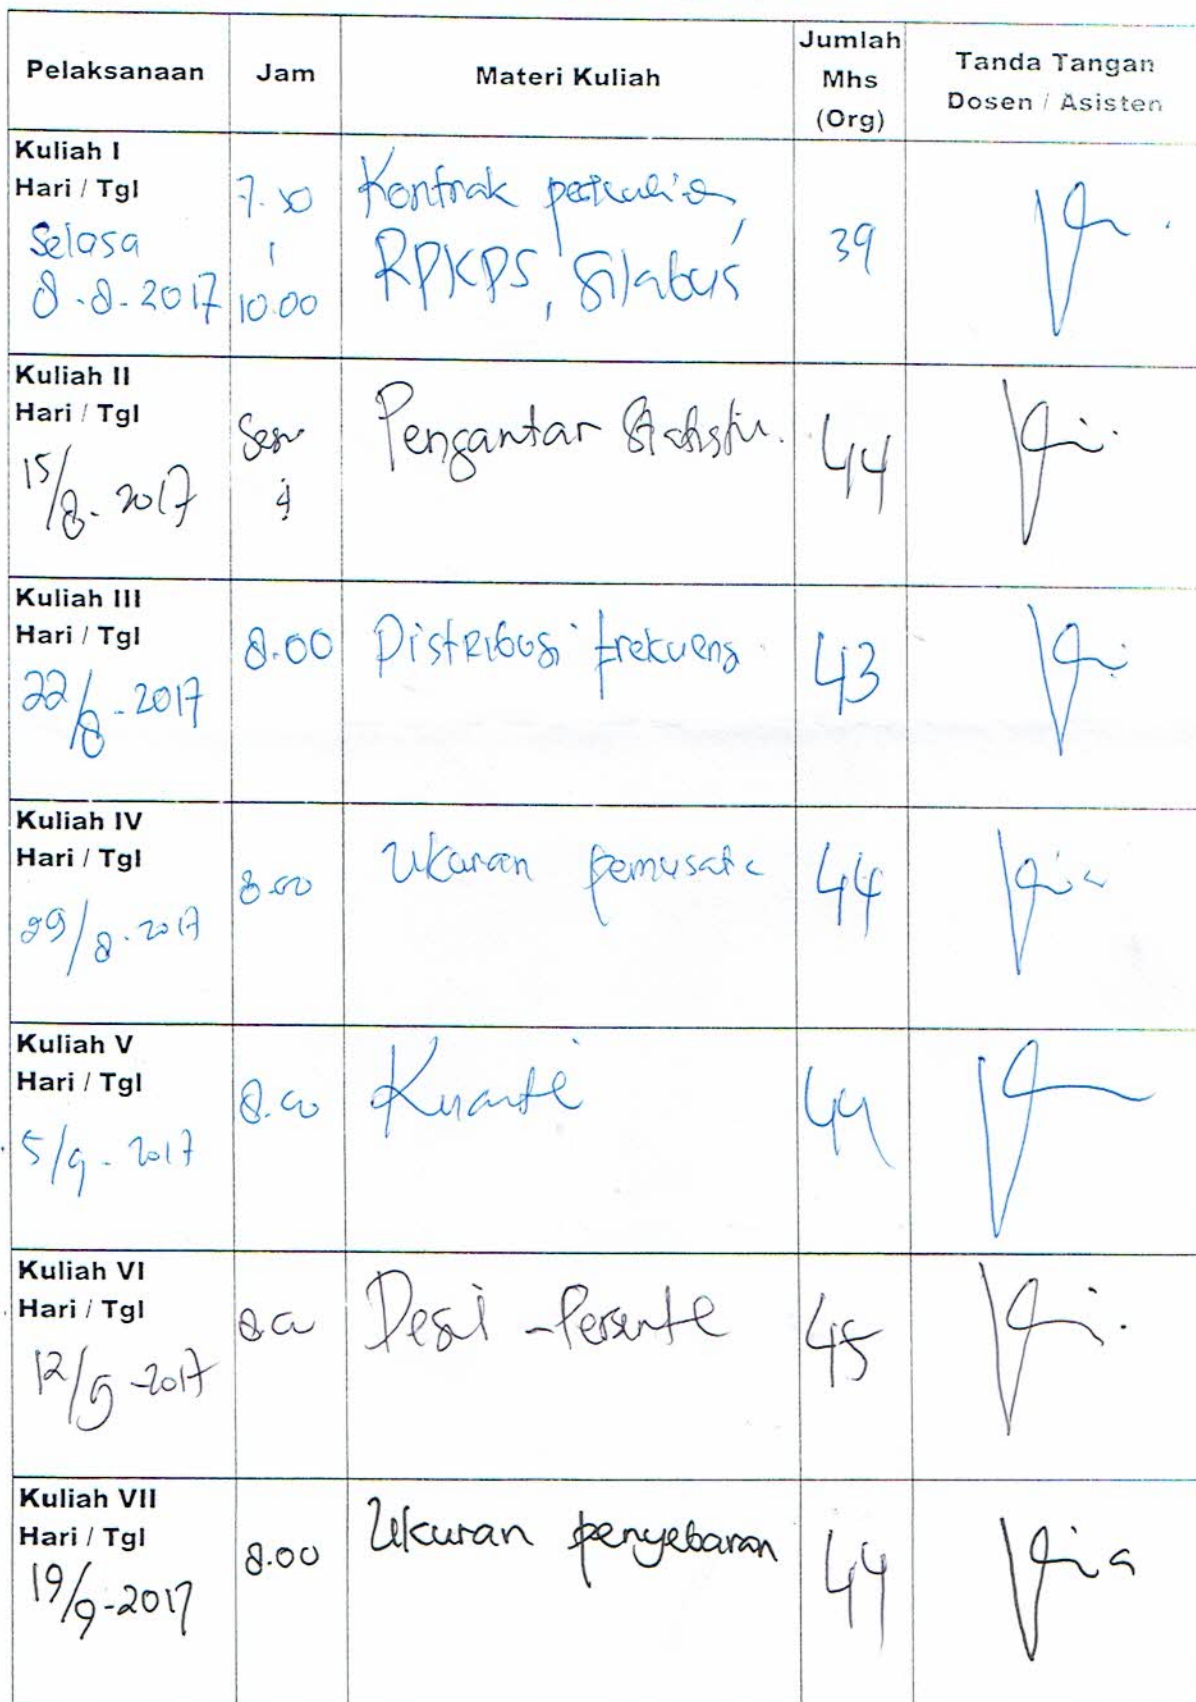 Pelaksanaan Jam Materi Kuliah Jumlah Mhs (Org) Tanda Tangan Dosen / Asisten
Kuliah I
Hari / Tgl
Selasa
8-8-2017
10.00
Kontrak
RPKPS, Silabus
39
Kuliah II
Hari / Tgl
15/8-2017
Pengantar
44
Kuliah III
Hari / Tgl
22/8-2017
8.00
Distribusi frekuensi
43
Kuliah IV
Hari / Tgl
29/8-2017
8.00
Ukuran
44
Kuliah V
Hari / Tgl
5/9-2017
44
Kuliah VI
Hari / Tgl
12/9-2017
45
Kuliah VII
Hari / Tgl
19/9-2017
8.00
Ukuran penyebaran
44